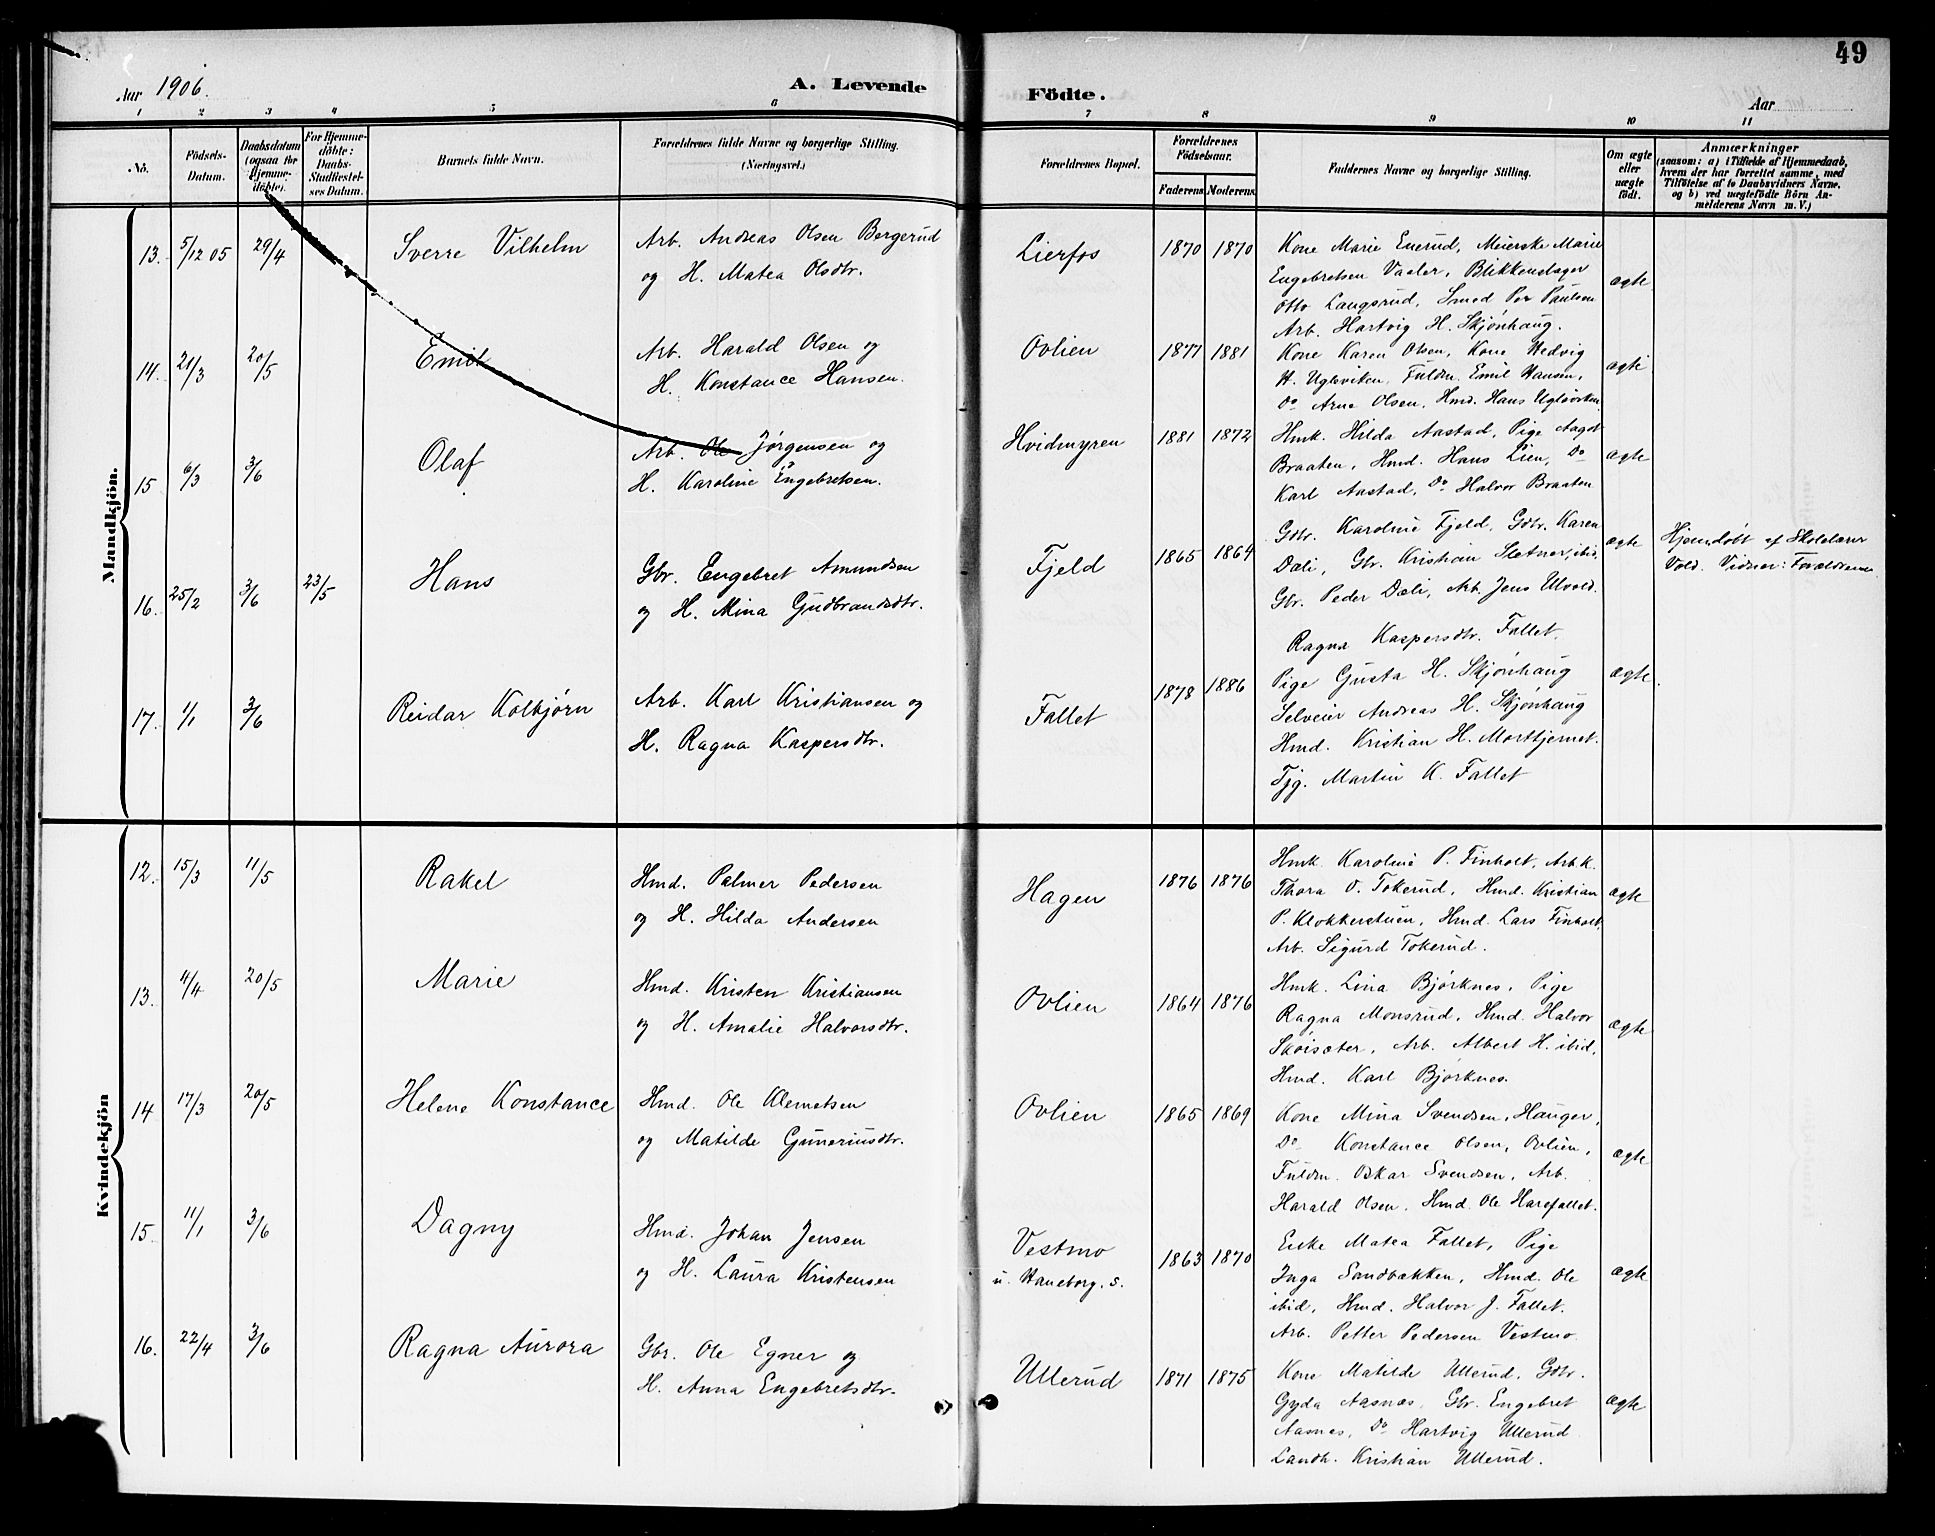 49
Aar 1906. A. Levende Födte. Aar
1 2 3 4 5 6 7 8 9 10 11
No. Födsels-Datum. Daabsdatum (ogsaa for Hjemme-döbte). For Hjemme-döbte: Daabs-Stadfæstel-ses Datum. Barnets fulde Navn. Forældrenes fulde Navne og borgerlige Stilling. (Næringsvei.) Forældrenes Bopæl. Forældrenes Födselsaar. Faderens Moderens Faddernes Navne og borgerlige Stilling. Om ægte eller uægte födt. Anmærkninger (saasom: a) i Tilfælde af Hjemmedaab, hvem der har forrettet samme, med Tilföielse af to Daabsvidners Navne, og b) ved uægtefödte Börn An-melderens Navn m. V.)
Mandkjön.
13. 5/12 05 29/4 Sverre Vilhelm Arb. Andreas Olsen Bergerud
og H. Matea Olsdtr.
Lierfos 1870 1870 Kone Marie Enerud, Meierske Marie
Engebretsen Vaaler, Blikkenslager
Otto Langsrud, Smed Per Paulsen
Arb. Hartvig H. Skjønhaug.
ægte
14. 21/3 20/5 Emil Arb. Harald Olsen og
H. Konstance Hansen.
Ovlien 1877 1881 Kone Karen Olsen, Kone Hedvig
H. Uglviken, Fuldm. Emil Hansen,
Do Arne Olsen, Hmd. Hans Uglviken
ægte
15 6/3 3/6 Olaf Arb. Ole Jørgensen og
H. Karoline Engebretsen.
Hvidmyren 1881 1872 Hmk. Hilda Aastad, Pige Aagot
Braaten, Hmd. Hans Lien, Do
Karl Aastad, Do Halvor Braaten
ægte
16. 25/2 3/6 23/5 Hans Gbr. Engebret Amundsen
og H. Mina Gudbrandsdtr.
Fjeld 1865 1864 Gdtr. Karoline Fjeld, Gdtr. Karen
Dæli, Gbr. Kristian Sletner, ibid,
Gbr. Peder Dæli, Arb. Jens Ulvold.
ægte Hjemdøbt af Skolelærer
Vold. Vidner: Forældrene
17. 1/1 3/6 Reidar Kolbjørn Arb. Karl Kristiansen og
H. Ragna Kaspersdtr.
Fallet 1878 1886 Ragna Kaspersdtr. Fallet,
Pige Gusta H. Skjønhaug
Selveier Andreas H. Skjønhaug
Hmd. Kristian H. Morttjernet.
Tjg. Martin K. Fallet
ægte.
Kvindekjön
12. 15/3 11/5 Rakel Hmd. Palmer Pedersen
og H. Hilda Andersen
Hagen 1876 1876 Hmk. Karoline P. Finholt, Arb.k.
Thora O. Tokerud, Hmd. Kristian
P. Klokkerstuen, Hmd. Lars Finholt,
Arb. Sigurd Tokerud.
ægte
13. 4/4 20/5 Marie Hmd. Kristen Kristiansen
og H. Amalie Halvorsdtr.
Ovlien 1864 1876 Hmk. Lina Bjørknes, Pige
Ragna Monsrud, Hmd. Halvor
Skøisæter, Arb. Albert H. ibid,
Hmd. Karl Bjørknes.
ægte
14 17/3 20/5 Helene Konstance Hmd. Ole Klemetsen
og Matilde Guneriusdtr.
Ovlien 1865 1869 Kone Mina Svendsen, Hauger,
Do Konstance Olsen, Ovlien,
Fuldm. Oskar Svendsen, Arb.
Harald Olsen. Hmd. Ole Harefallet.
ægte
15 11/1 3/6 Dagny Hmd. Johan Jensen
og H. Laura Kristensen
Vestmo
u. Haneborg. s. 1863 1870 Enke Matea Fallet, Pige
Inga Sandbækken, Hmd. Ole
ibid, Hmd. Halvor J. Fallet.
Arb. Petter Pedersen Vestmo.
ægte
16. 22/4 3/6 Ragna Aurora Gbr. Ole Egner og
H. Anna Engebretsdtr.
Ullerud 1871 1875 Kone Matilde Ullerud, Gdtr.
Gyda Aasnæs, Gbr. Engebret
Aasnes, Do Hartvig Ullerud
Landh. Kristian Ullerud.
ægte